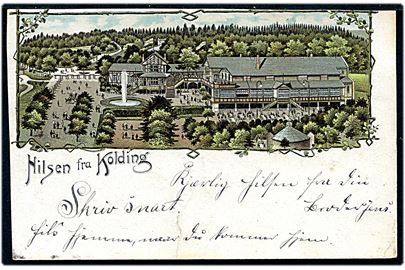 Hilsen fra Kolding
Kjærlig hilsen fra din
Skriv snart. Broder Jens
hils hjemme, naar du kommer hjem.